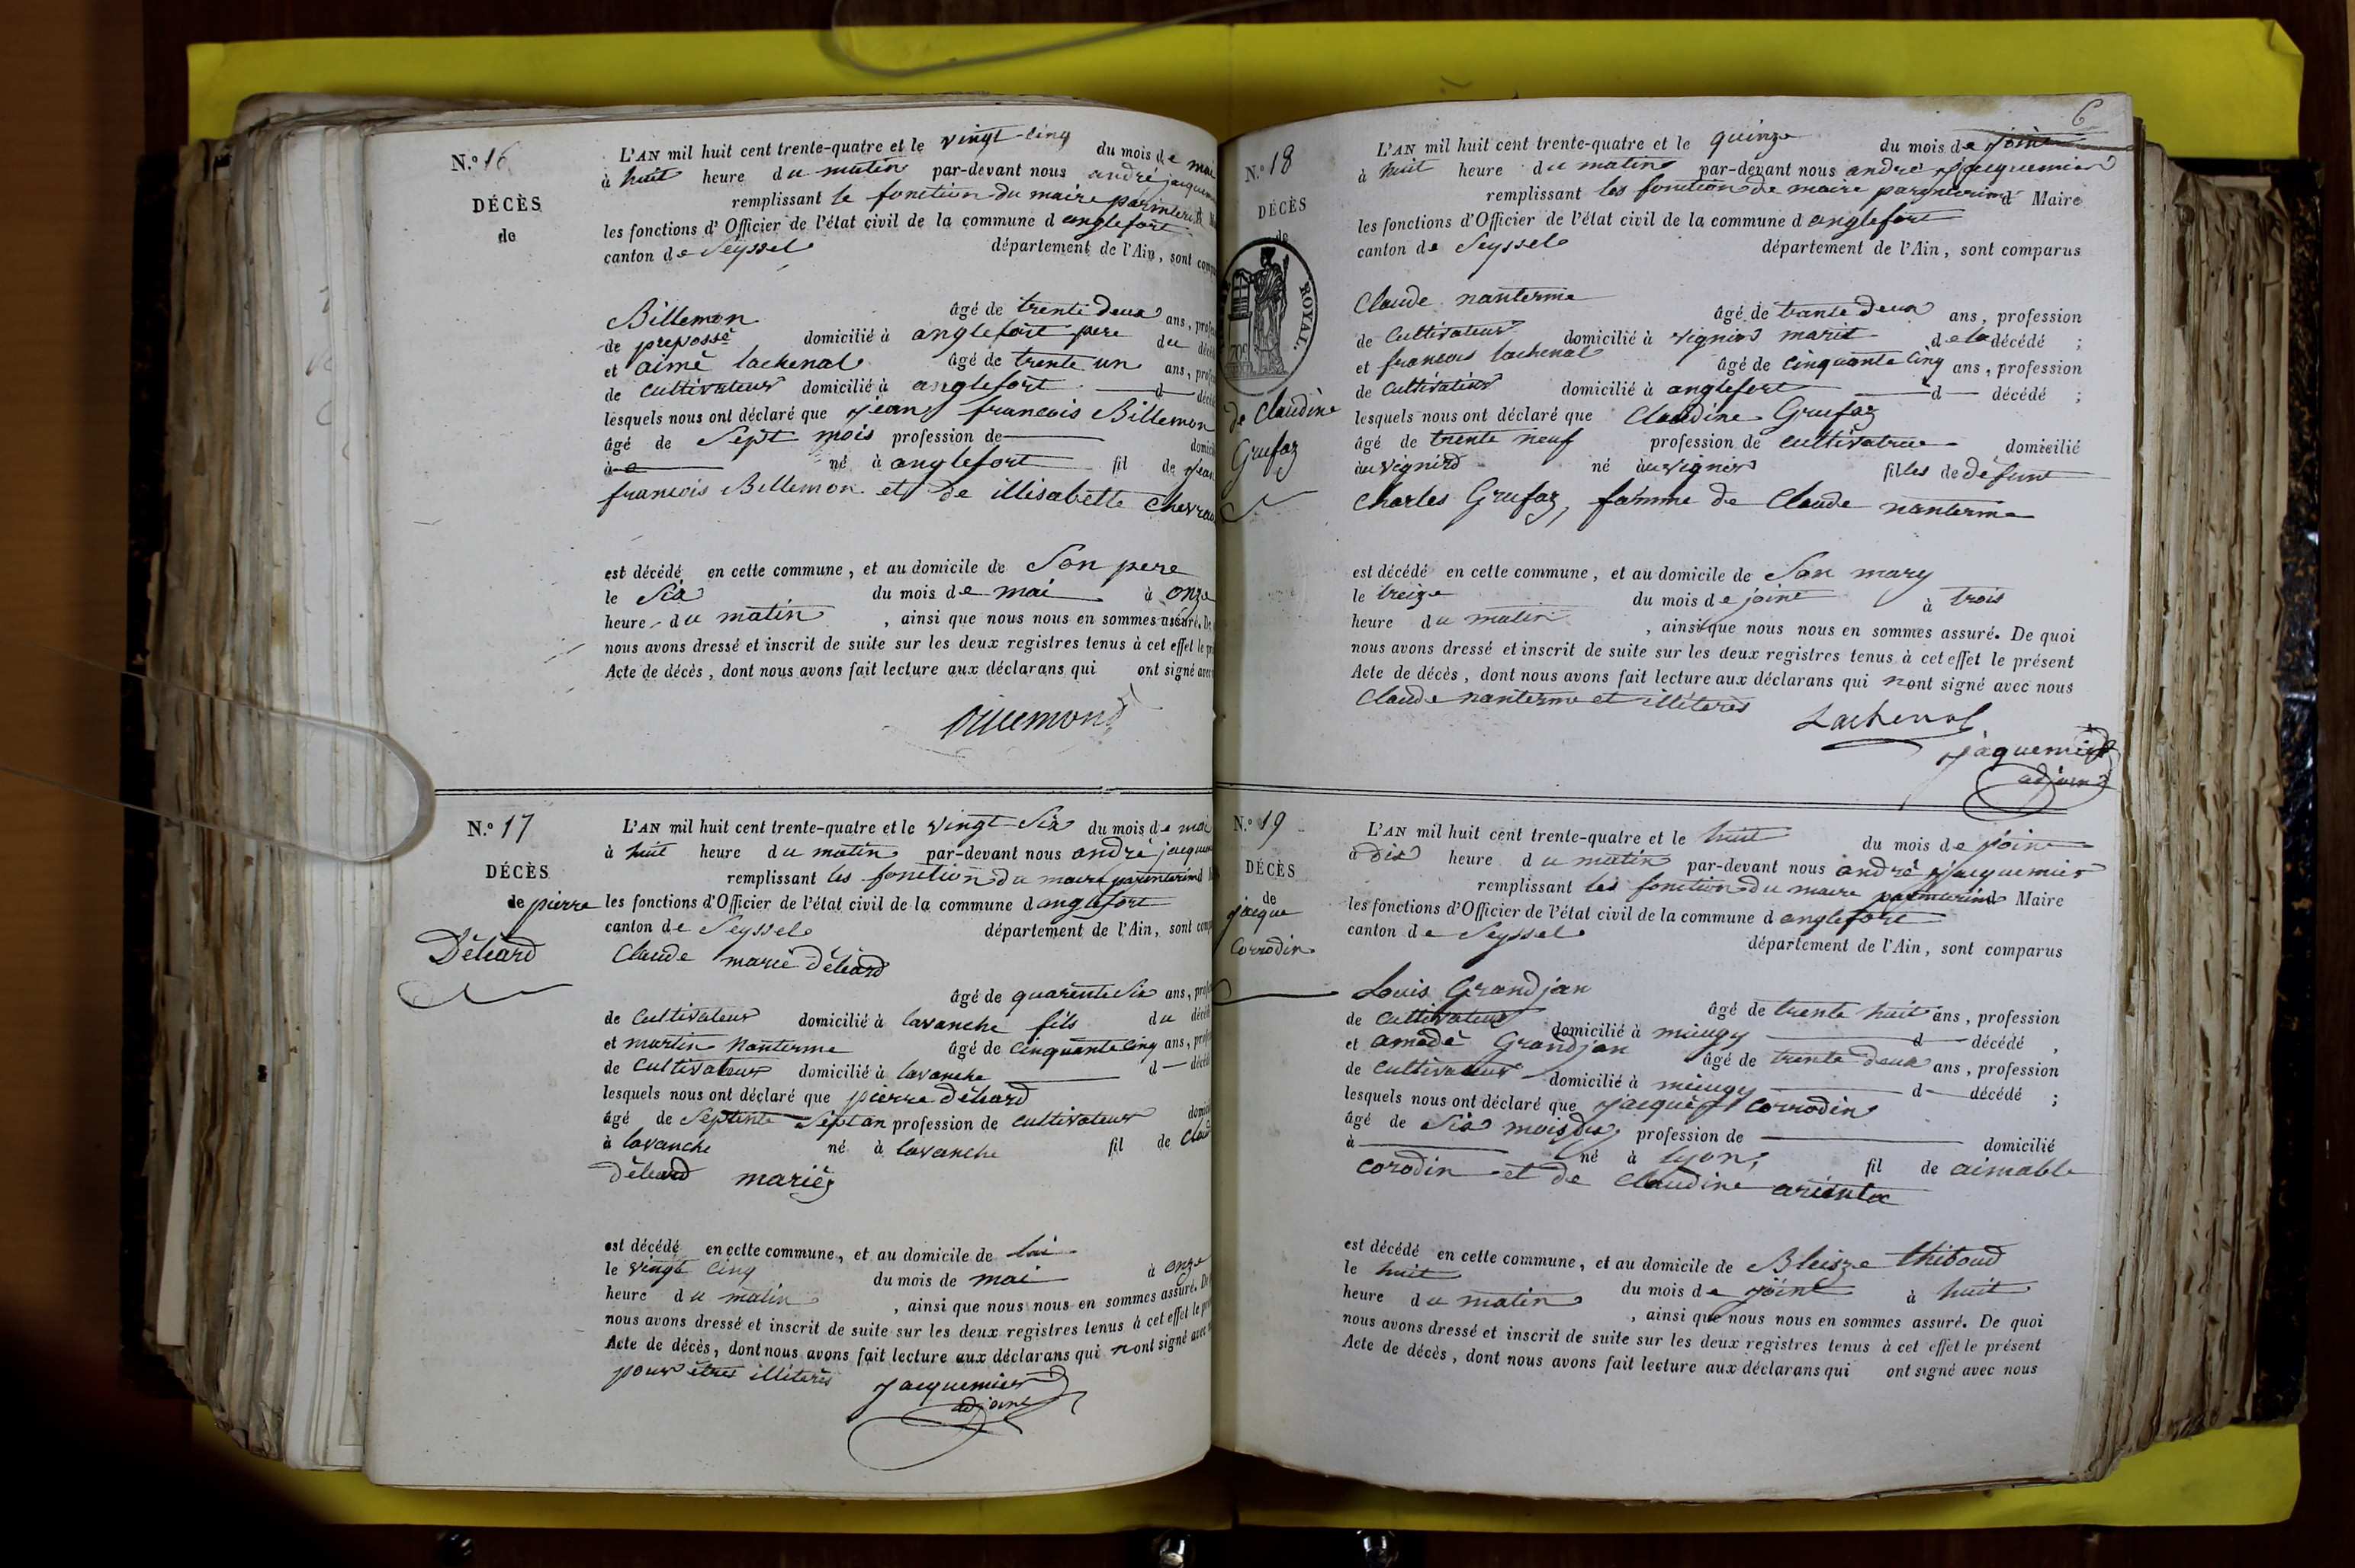 N.º 16
DÉCÈS
de
L'AN mil huit cent trente-quatre et le vingt-cinq du mois de mai
à huit heure du matin par-devant nous andré jacquem
remplissant le fonction du maire parinterid
les fonctions d'Officier de l'état civil de la commune d anglefort
canton de Seyssel département de l'Ain, sont comp
Billemon âgé de trente deux ans, profes
de prepossé domicilié à anglefort pere du décéd
et aimé lachenal âgé de trente un ans, profes
de cultivateur domicilié à anglefort d décéd
lesquels nous ont déclaré que jean francois Billemon
âgé de Sept mois profession de domici
à né à anglefort fil de jean
francois Billemon et de illisabette chevrau
est décédé en cette commune, et au domicile de Son pere
le Six du mois de mai à onze
heure du matin, ainsi que nous nous en sommes assuré. De
nous avons dressé et inscrit de suite sur les deux registres tenus à cet effet le pr
Acte de décès, dont nous avons fait lecture aux déclarans qui ont signé avec
Billemond
N.º 17
DÉCÈS
de pierre
Déléard
L'AN mil huit cent trente-quatre et le vingt-Six du mois de mai
à huit heure du matin par-devant nous andré jacquem
remplissant les fonction du maire parinterind
les fonctions d'Officier de l'état civil de la commune d anglefort
canton de Seyssel département de l'Ain, sont comp
Claude marie déléard
âgé de quarente Six ans, profes
de Cultivateur domicilié à lavanche fils du décéd
et martin Nanterme âgé de Cinquante Cinq ans, profes
de Cultivateur domicilié à lavanche d décéd
lesquels nous ont déclaré que pierre déléard
âgé de Septente Sept an profession de cultivateur domici
à lavanche né à lavanche fil de Claud
déléard mariés
est décédé en cette commune, et au domicile de lui
le vingt cinq du mois de mai à onze
heure du matin, ainsi que nous nous en sommes assuré. De
nous avons dressé et inscrit de suite sur les deux registres tenus à cet effet le pr
Acte de décès, dont nous avons fait lecture aux déclarans qui nont signé avec n
pour êtres illiterés jacquemier
adjoint
6
N.º 18
DÉCÈS
de
ROYAL.
de Claudine
Grufaz
L'AN mil huit cent trente-quatre et le quinze du mois de join
à huit heure du matin par-devant nous andré jacquemier
remplissant les fonction de maire parinterind Maire
les fonctions d'Officier de l'état civil de la commune d anglefort
canton de Seyssel département de l'Ain, sont comparus
Claude nanterme
âgé de trante deux ans, profession
de Cultivateur domicilié à vignier marit de la décédé ;
et francois lachenal âgé de cinquante Cinq ans, profession
de Cultivateur domicilié à anglefort d décédé ;
lesquels nous ont déclaré que Claudine Grufaz
âgé de trente neuf profession de cultivatrice domicilié
àu vignird né àu vignier filles de défunt
charles Grufaz, famme de Claude nanterme
est décédé en cette commune, et au domicile de Son mary
le treize du mois de joint à trois
heure du matin, ainsi que nous nous en sommes assuré. De quoi
nous avons dressé et inscrit de suite sur les deux registres tenus à cet effet le présent
Acte de décès, dont nous avons fait lecture aux déclarans qui nont signé avec nous
Claude nanterme et illiterés
Lachenal
jaquemier
adjoint
N.º 19
DÉCÈS
de
jacque
Corrodin
L'AN mil huit cent trente-quatre et le huit du mois de join
à dix heure du matin par-devant nous andré jacquemier
remplissant les fonction du maire parinterind Maire
les fonctions d'Officier de l'état civil de la commune d anglefort
canton de Seyssel département de l'Ain, sont comparus
Louis Grandjan
âgé de trente huit ans, profession
de Cultivateur domicilié à mieugy d décédé ,
et amedé Grandjan âgé de trente deux ans, profession
de Cultivateur domicilié à mieugy d décédé ;
lesquels nous ont déclaré que jacques Corrodin
âgé de Six mois dix profession de domicilié
à né à lyon, fil de aimable
corodin et de Claudine
est décédé en cette commune, et au domicile de Bleisze thiboud
le huit du mois de joint à huit
heure du matin, ainsi que nous nous en sommes assuré. De quoi
nous avons dressé et inscrit de suite sur les deux registres tenus à cet effet le présent
Acte de décès, dont nous avons fait lecture aux déclarans qui ont signé avec nous